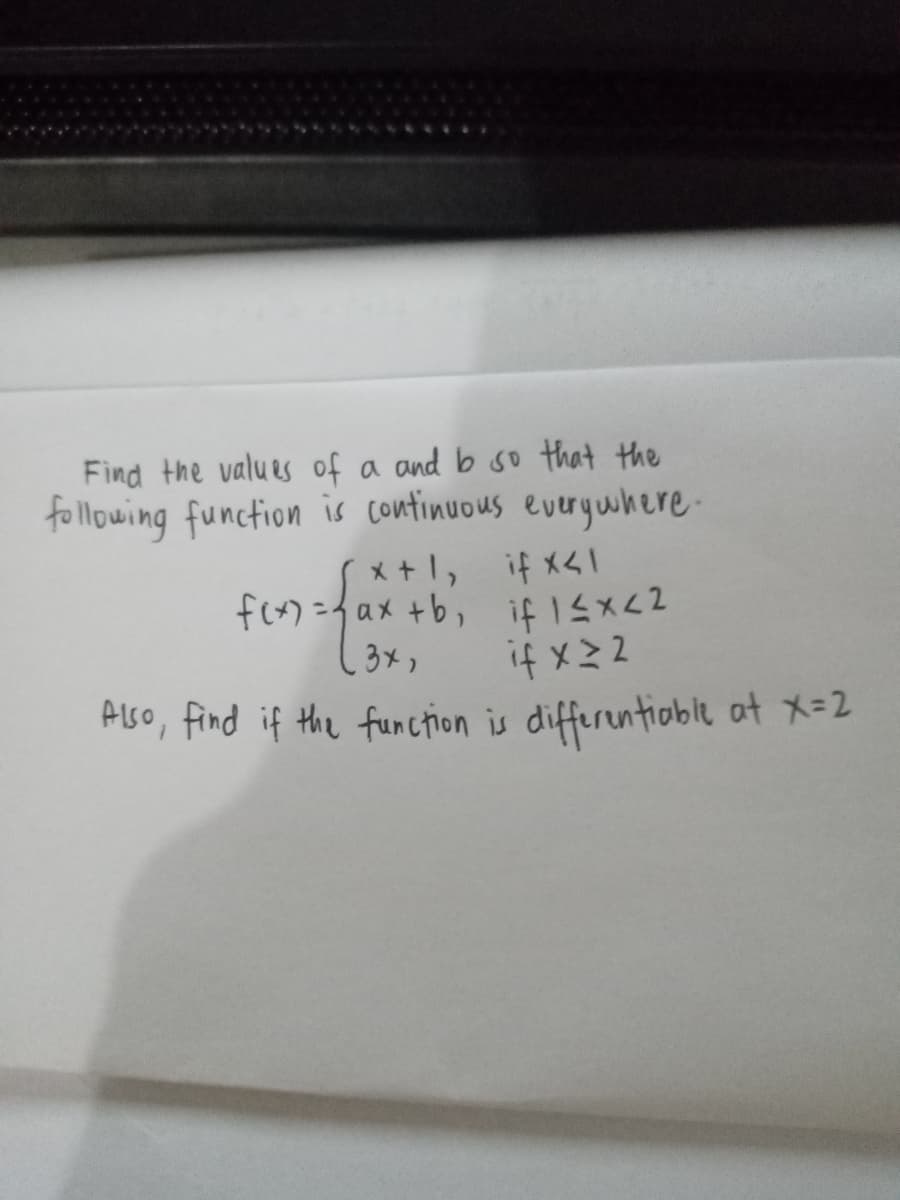 Find the values of a and b so that the
following function is continuous everywhere.
x + 1, if x < 1
f(x) = { ax + b, if 1 ≤ x < 2
3x, if x ≥ 2
Also, find if the function is differentiable at x = 2